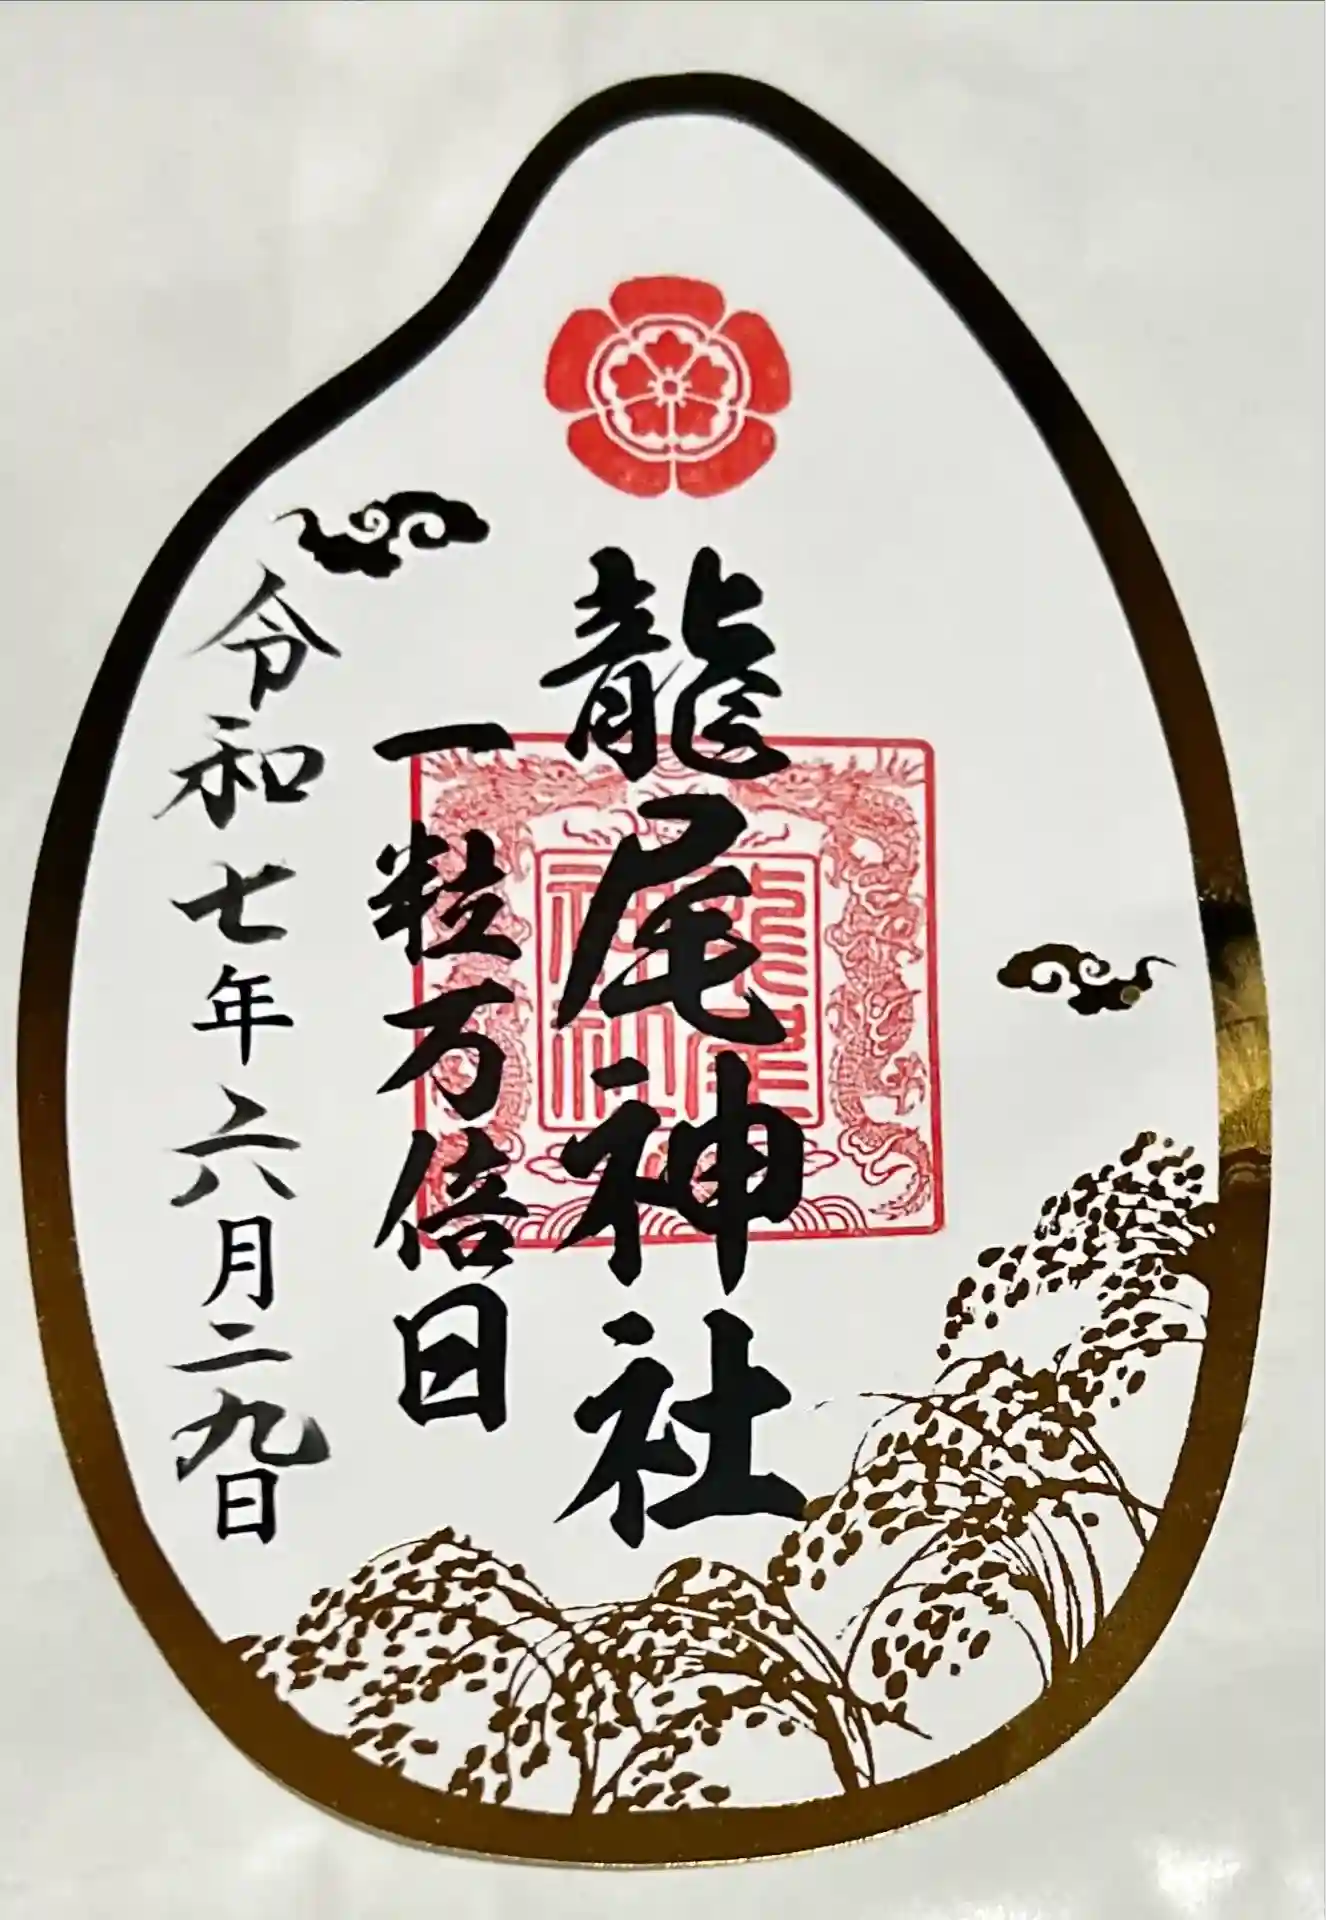 龍尾神社
一粒万倍日
令和七年六月二九日
龍尾
神社